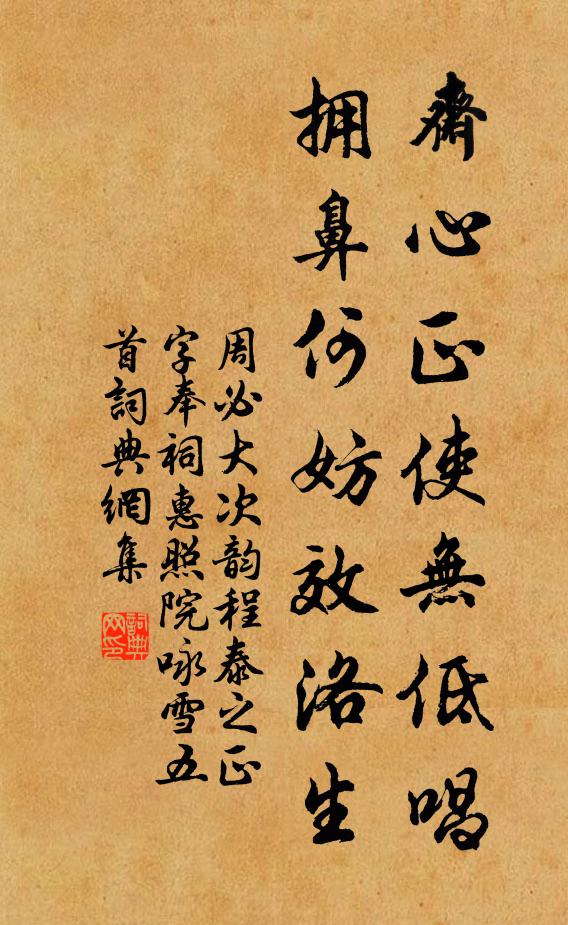 齋心正使無低唱
拥鼻何妨效洛生
周必大次韵程泰之正
字奉祠惠照院咏雪五
首詞典網集
詞典
网印